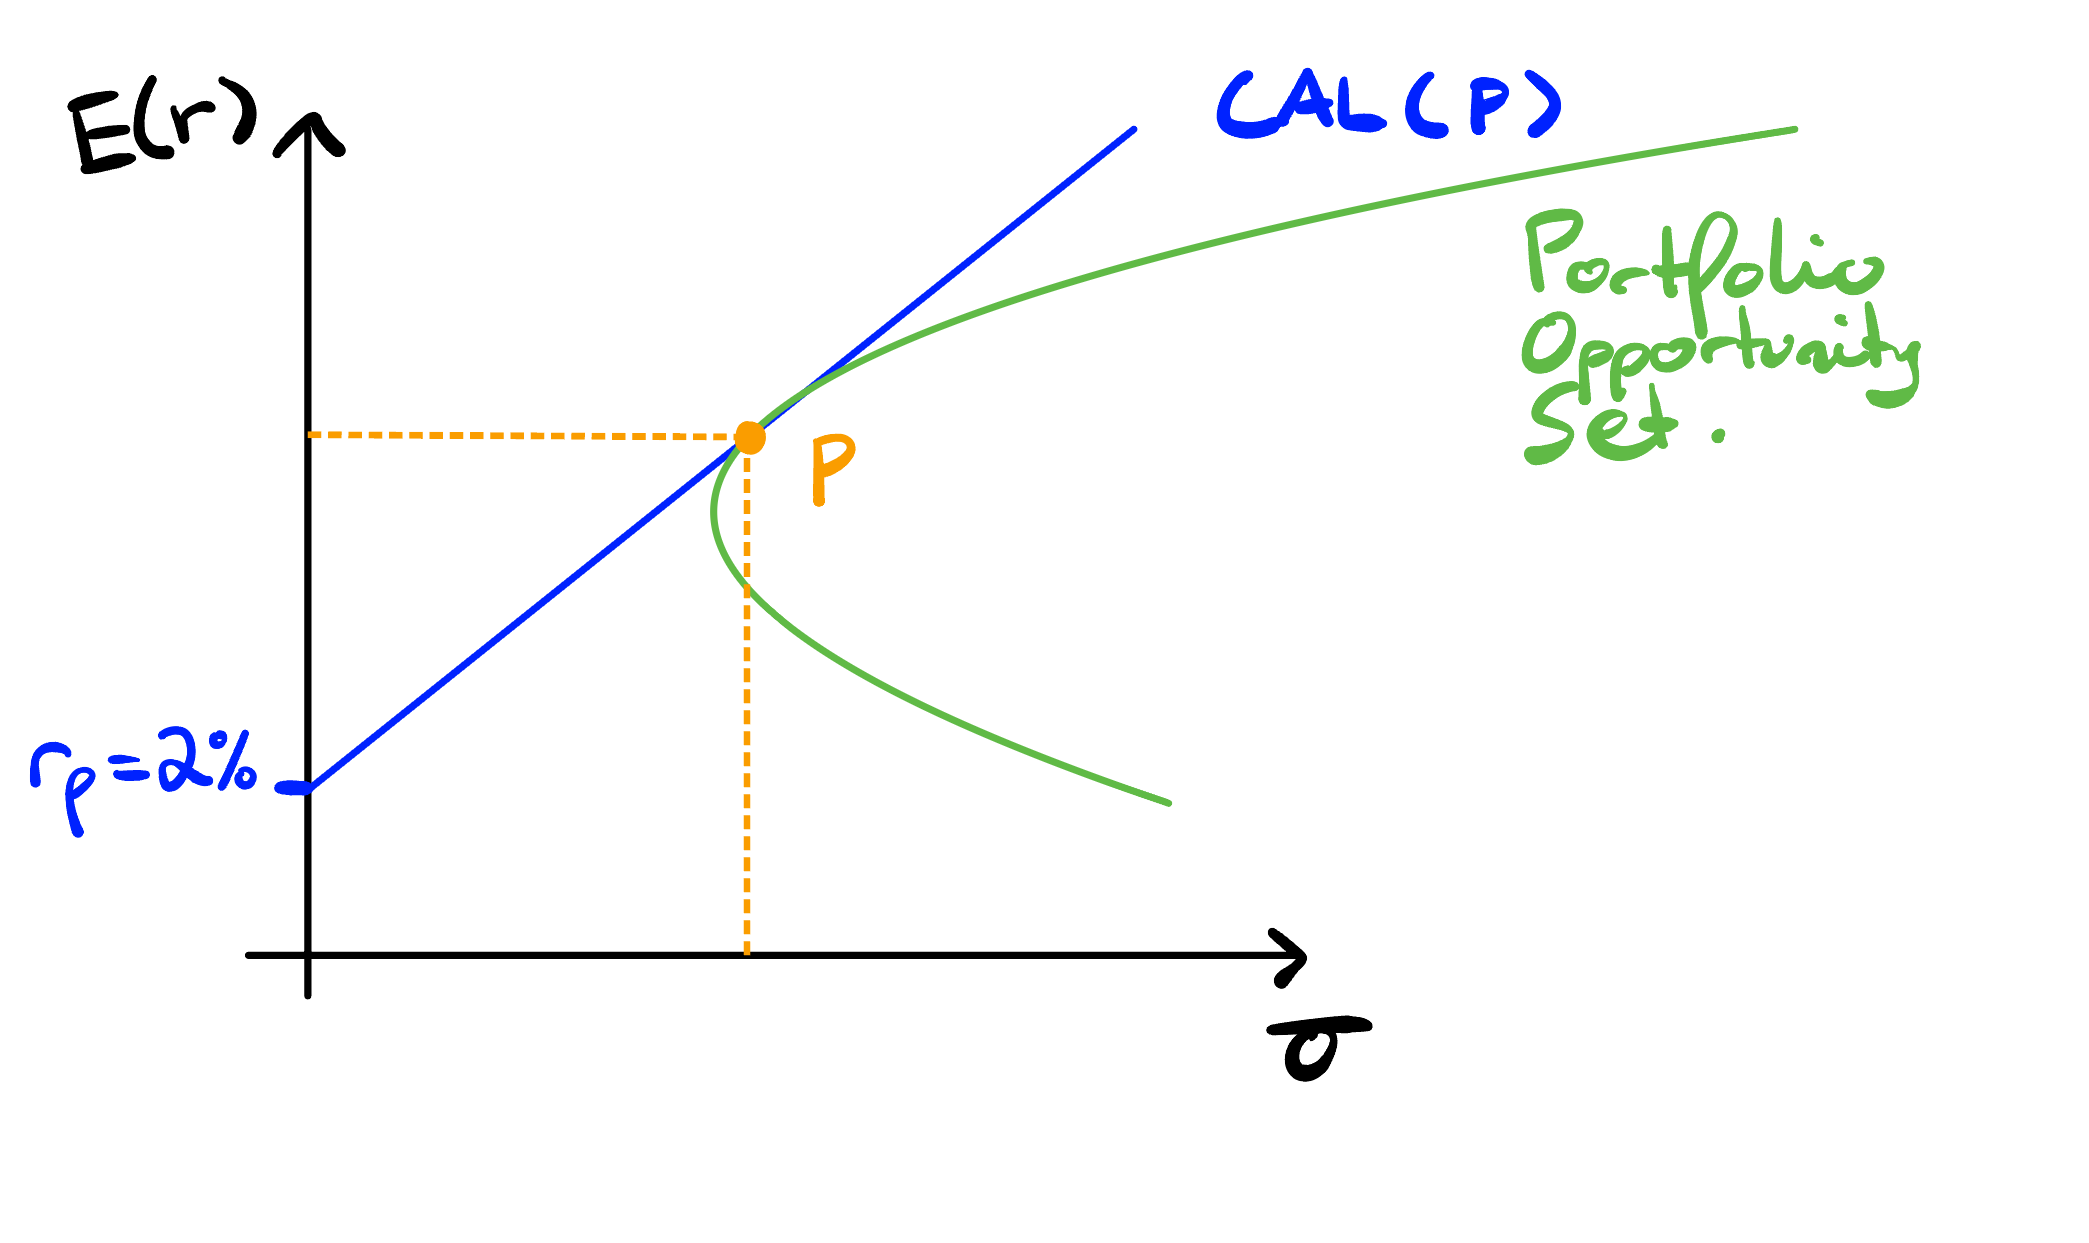 E(r)
CAL(P)
Portfolio
Opportunity
Set.
P
rp=2%
σ